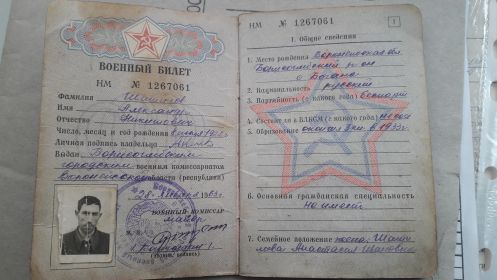 ВОЕННЫЙ БИЛЕТ
НМ № 1267061
Фамилия
Имя Александр
Отчество Никитович
Число, месяц и год рождения
Личная подпись владельца
Выдан Борисоглебским
городским военным комиссариатом
Воронежской области (республики)
28 1963 г.
ВОЕННЫЙ КОМИССАР
майор
М. П.
(звание, подпись)
НМ № 1267061
1
I. Общие сведения
1. Место рождения Воронежская обл.
Борисоглебский р-он
2. Национальность русский
3. Партийность (с какого года) беспарт
4. Состоит ли в ВЛКСМ (с какого года) не сост
5. Образование окончил в 1933г.
6. Основная гражданская специальность
не имеет
7. Семейное положение жена:
Анастасия Ивановна